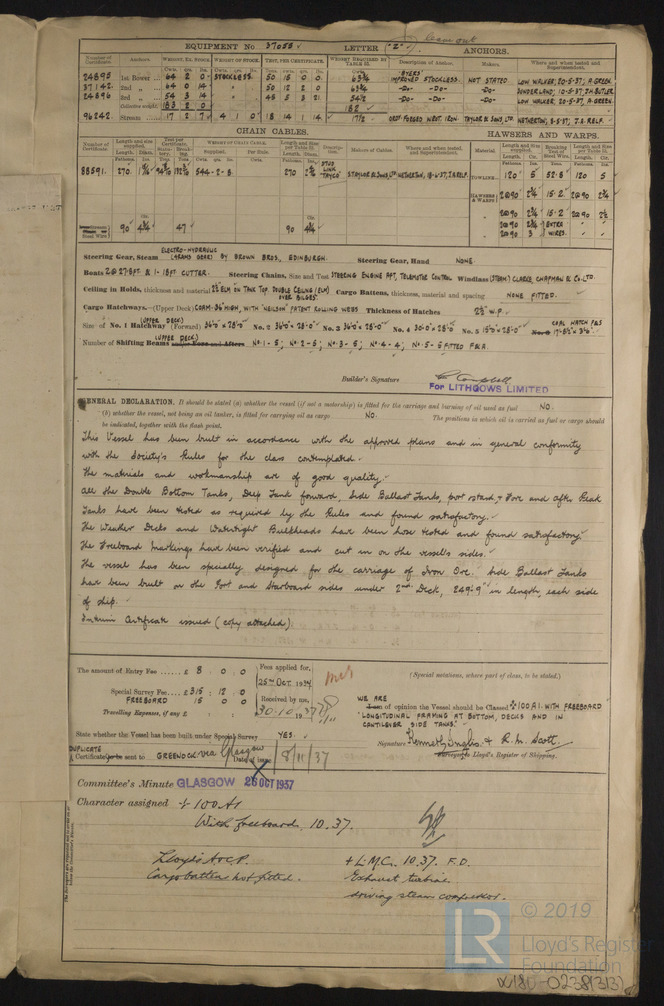 EQUIPMENT No 37055 LETTER "Z" ANCHORS.
Number of Certificate. Anchors. WEIGHT, EX. STOCK. WEIGHT OF STOCK. TEST, PER CERTIFICATE. WEIGHT REQUIRED BY TABLE 22. Description of Anchor. Makers. Where and when tested and Superintendent.
24895 1st Bower 64 2 0 STOCKLESS 50 15 0 0 63¾ BYERS IMPROVED STOCKLESS. NOT STATED LOW WALKER, 20-5-37, A. GREEN.
37142 2nd " 64 0 14 " 50 12 2 0 63¾ -DO- -DO- -DO- SUNDERLAND, 10-5-37, J.H. BUTLER.
24896 3rd " 54 3 14 " 45 5 3 21 54½ -DO- -DO- -DO- LOW WALKER, 20-5-37, A. GREEN.
Collective weight 183 2 0 182
96242 Stream 17 2 7 4 1 0 18 14 1 14 17½ ORDY. FORGED WROT. IRON. TAYLOR & SONS, LTD. NETHERTON, 8-5-37, J.A. RELF.
CHAIN CABLES. HAWSERS AND WARPS.
88591. 270 544-2-8 270 STUD LINK TAYCO S TAYLOR & SONS LTD NETHERTON, 18-6-37, J.A. RELF. TOWLINE 120 5 52·8 120 5
HAWSERS & WARPS 2@90 2¾ 15·2 2@90 2¾
2@90 2¾ 15·2 2@90 2½
90 4¾ 47 90 4¾ 2@90 2¾ EXTRA
2@90 3 WIRES.
ELECTRO-HYDRAULIC
Steering Gear, Steam (4 RAMS GEAR) BY BROWN BROS, EDINBURGH. Steering Gear, Hand NONE
Boats 2@27·8FT. & 1-18FT CUTTER. Steering Chains, Size and Test STEERING ENGINE AFT, TELEMOTOR CONTROL Windlass (STEAM) CLARKE, CHAPMAN & CO. LTD.
Ceiling in Holds, thickness and material 2½" ELM ON TANK TOP. DOUBLE CEILING (ELM) OVER BILGES. Cargo Battens, thickness, material and spacing NONE FITTED.
Cargo Hatchways.—(Upper Deck) COAM. 36" HIGH, WITH 'NEILSON' PATENT ROLLING WEBS Thickness of Hatches 2½" W.P.
(UPPER DECK)
Size of No. 1 Hatchway (Forward) 36'0" x 28'0" No. 2 36'0" x 28'-0" No. 3 36'0" x 28'-0" No. 4 30·0" x 28·0" No. 5 15'0" x 28·0" COAL HATCH P&S 17'-8½" x 3'6"
(UPPER DECK)
Number of Shifting Beams No·1-5; No·2-5; No·3-5; No·4-4; No·5-5 FITTED F&A.
Builder's Signature Campbell
FOR LITHGOWS LIMITED
GENERAL DECLARATION. It should be stated (a) whether the vessel (if not a motorship) is fitted for the carriage and burning of oil used as fuel NO.
(b) whether the vessel, not being an oil tanker, is fitted for carrying oil as cargo NO. The positions in which oil is carried as fuel or cargo should
be indicated, together with the flash point.
This Vessel has been built in accordance with the approved plans and in general conformity
with the Society's Rules for the class contemplated.
The materials and workmanship are of good quality.
All the Double Bottom Tanks, Deep Tank forward, Side Ballast Tanks, port & starbd, & Fore and After Peak
Tanks have been tested as required by the Rules and found satisfactory.
The Weather Decks and Watertight Bulkheads have been hose tested and found satisfactory.
The Freeboard markings have been verified and cut in on the vessel's sides.
The vessel has been specially designed for the carriage of Iron Ore. Side Ballast Tanks
have been built on the Port and Starboard sides under 2nd Deck, 249'-9" in length, each side
of ship.
Interim Certificate issued (copy attached).
The amount of Entry Fee £ 8 . 0 . 0 Fees applied for, (Special notations, where part of class, to be stated.)
25th OCT. 1937
Special Survey Fee £315 : 12 . 0 Received by me,
FREEBOARD 15 0 0 30.10.1937
Travelling Expenses, if any £
WE ARE
of opinion the Vessel should be Classed +100 A1. WITH FREEBOARD
"LONGITUDINAL FRAMING AT BOTTOM, DECKS AND IN
CANTILEVER SIDE TANKS."
State whether the Vessel has been built under Special Survey YES.
Signature Kenneth Inglis. & R. M. Scott.
Surveyors to Lloyd's Register of Shipping.
DUPLICATE
Certificate sent to GREENOCK via Glasgow Date of issue 8/11/37
Committee's Minute GLASGOW 26 OCT 1937
Character assigned + 100 A1
With freeboard 10.37.
Lloyd's A & C.P. + L.M.C. 10.37. F.D.
Cargo battens not fitted. Exhaust turbine
driving steam compressor.
© 2019
LR
Lloyd's Register
Foundation